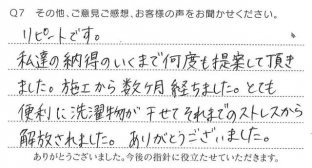 Q7 その他、ご意見ご感想、お客様の声をお聞かせください。
リピートです。
私達の納得のいくまで何度も提案して頂き
ました。施工から数ヶ月経ちました。とても
便利に洗濯物が干せてそれまでのストレスから
解放されました。ありがとうございました。
ありがとうございました。今後の指針に役立たせていただきます。